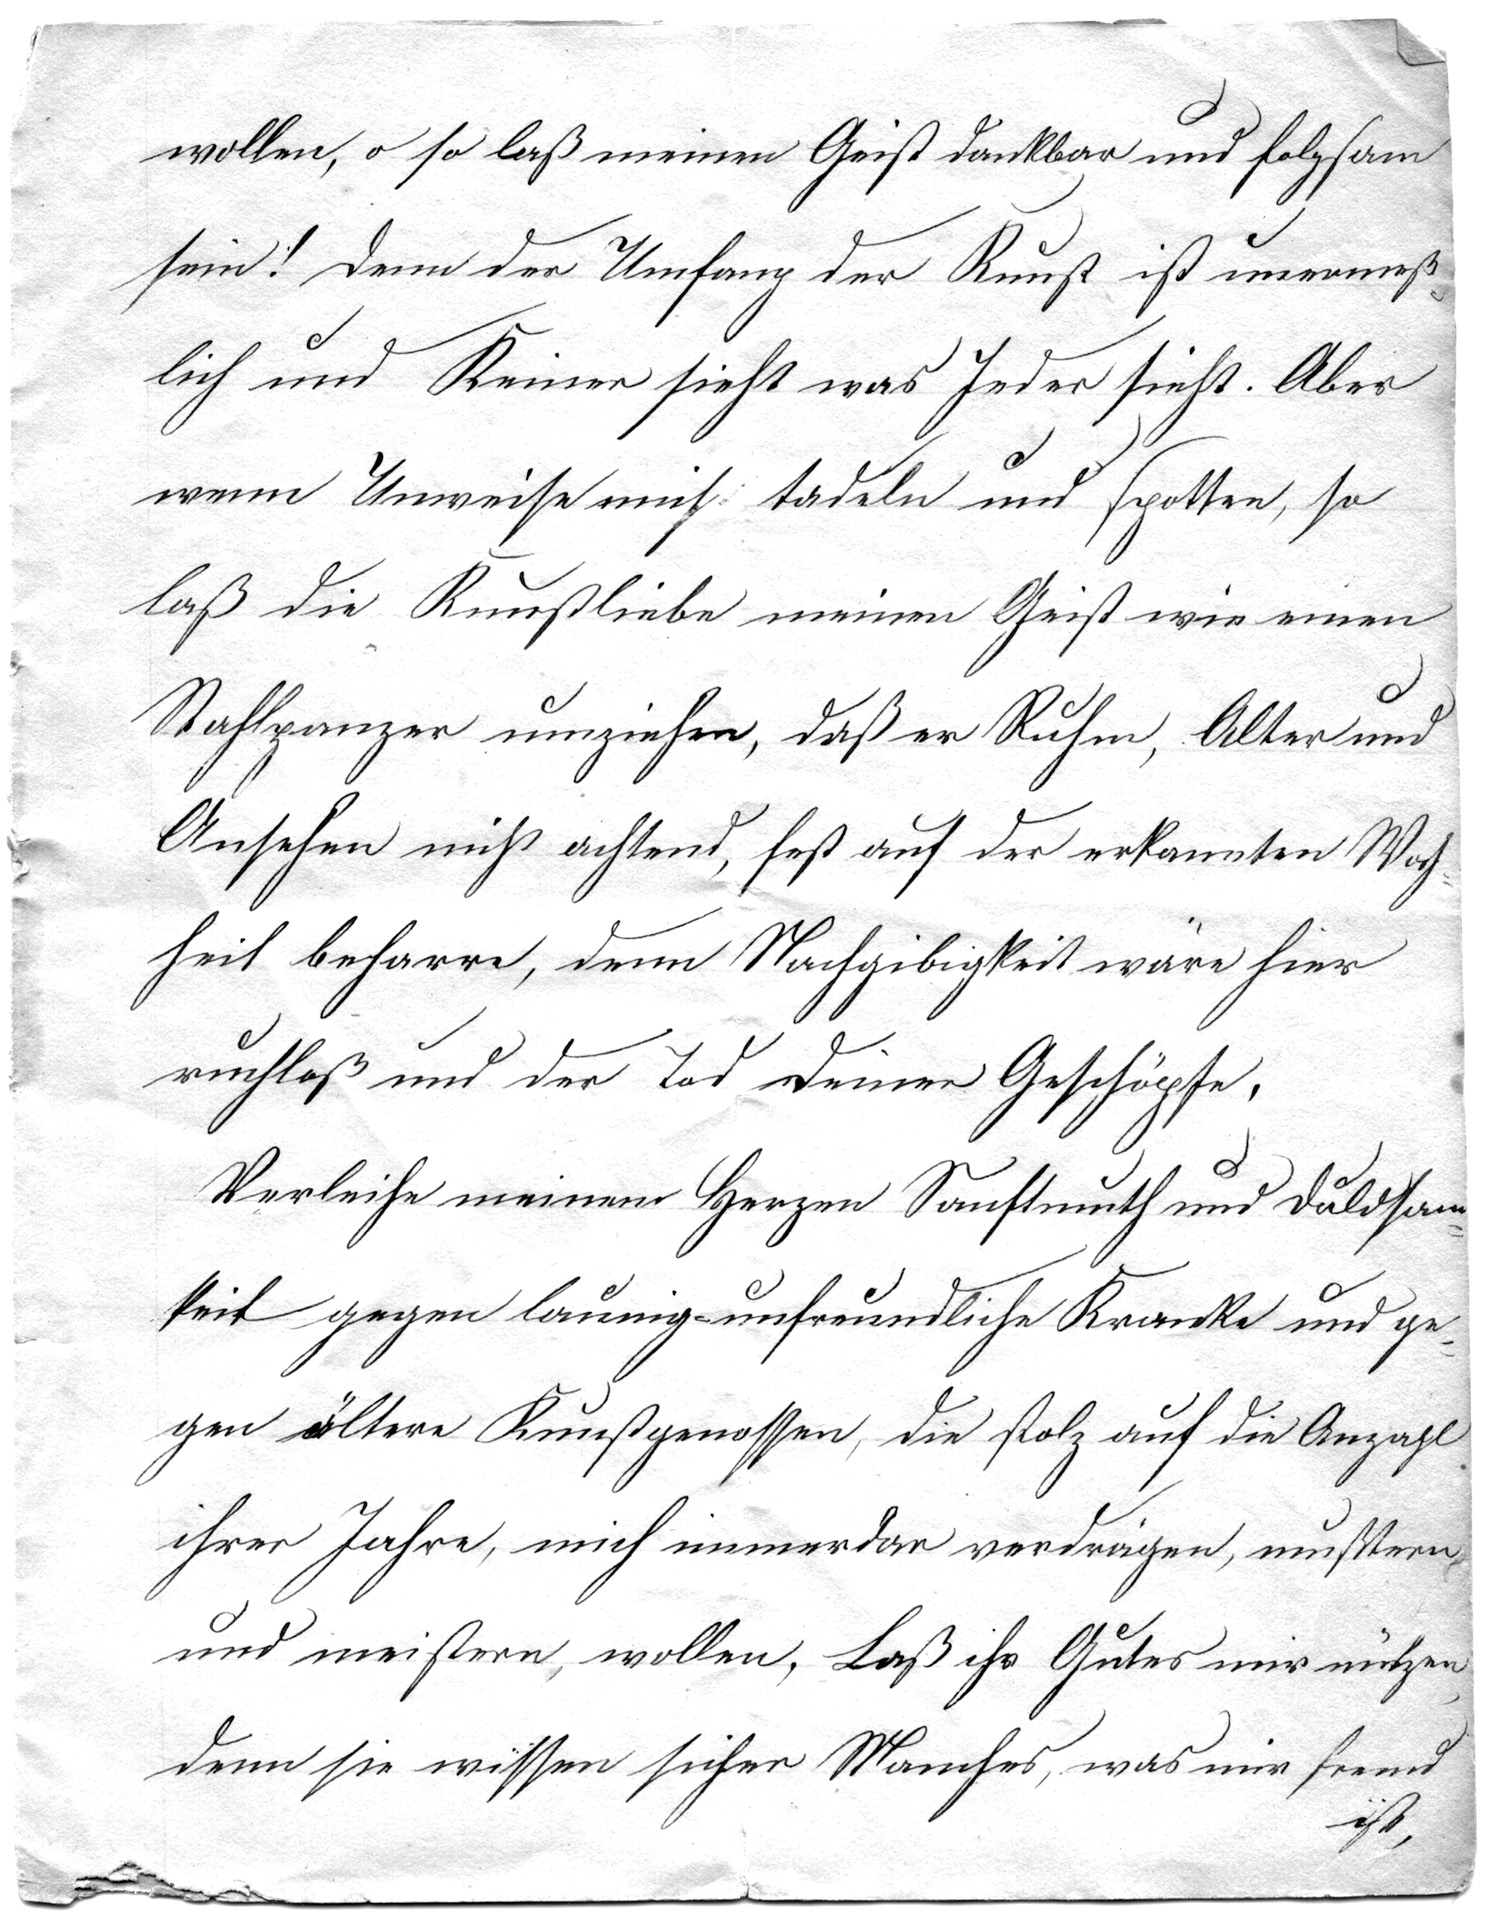 wollen, o so laß meinen Geist dankbar und folgsam
sein! Denn der Umfang der Kunst ist unermeß-
lich und Keiner sieht was Jeder sieht. Aber
wenn Unweise mich tadeln und spotten, so
laß die Kunstliebe meinen Geist wie einen
Stahlpanzer umziehen, daß er Ruhm, Alter und
Ansehen nicht achtend, fest auf der erkannten Wah-
heit beharre, denn Nachgibigkeit wäre hier
ruchloß und der Tod Deiner Geschöpfe.
Verleihe meinem Herzen Sanftmuth und Duldsam-
keit gegen launig-unfreundliche Kranke und ge-
gen ältere Kunstgenossen, die stolz auf die Anzahl
ihrer Jahre, mich immerdar verdrägen, mußtern
und meistern, wollen. Laß ihr Gutes mir nützen,
denn sie wissen sicher Manches, was mir fremd
ist,